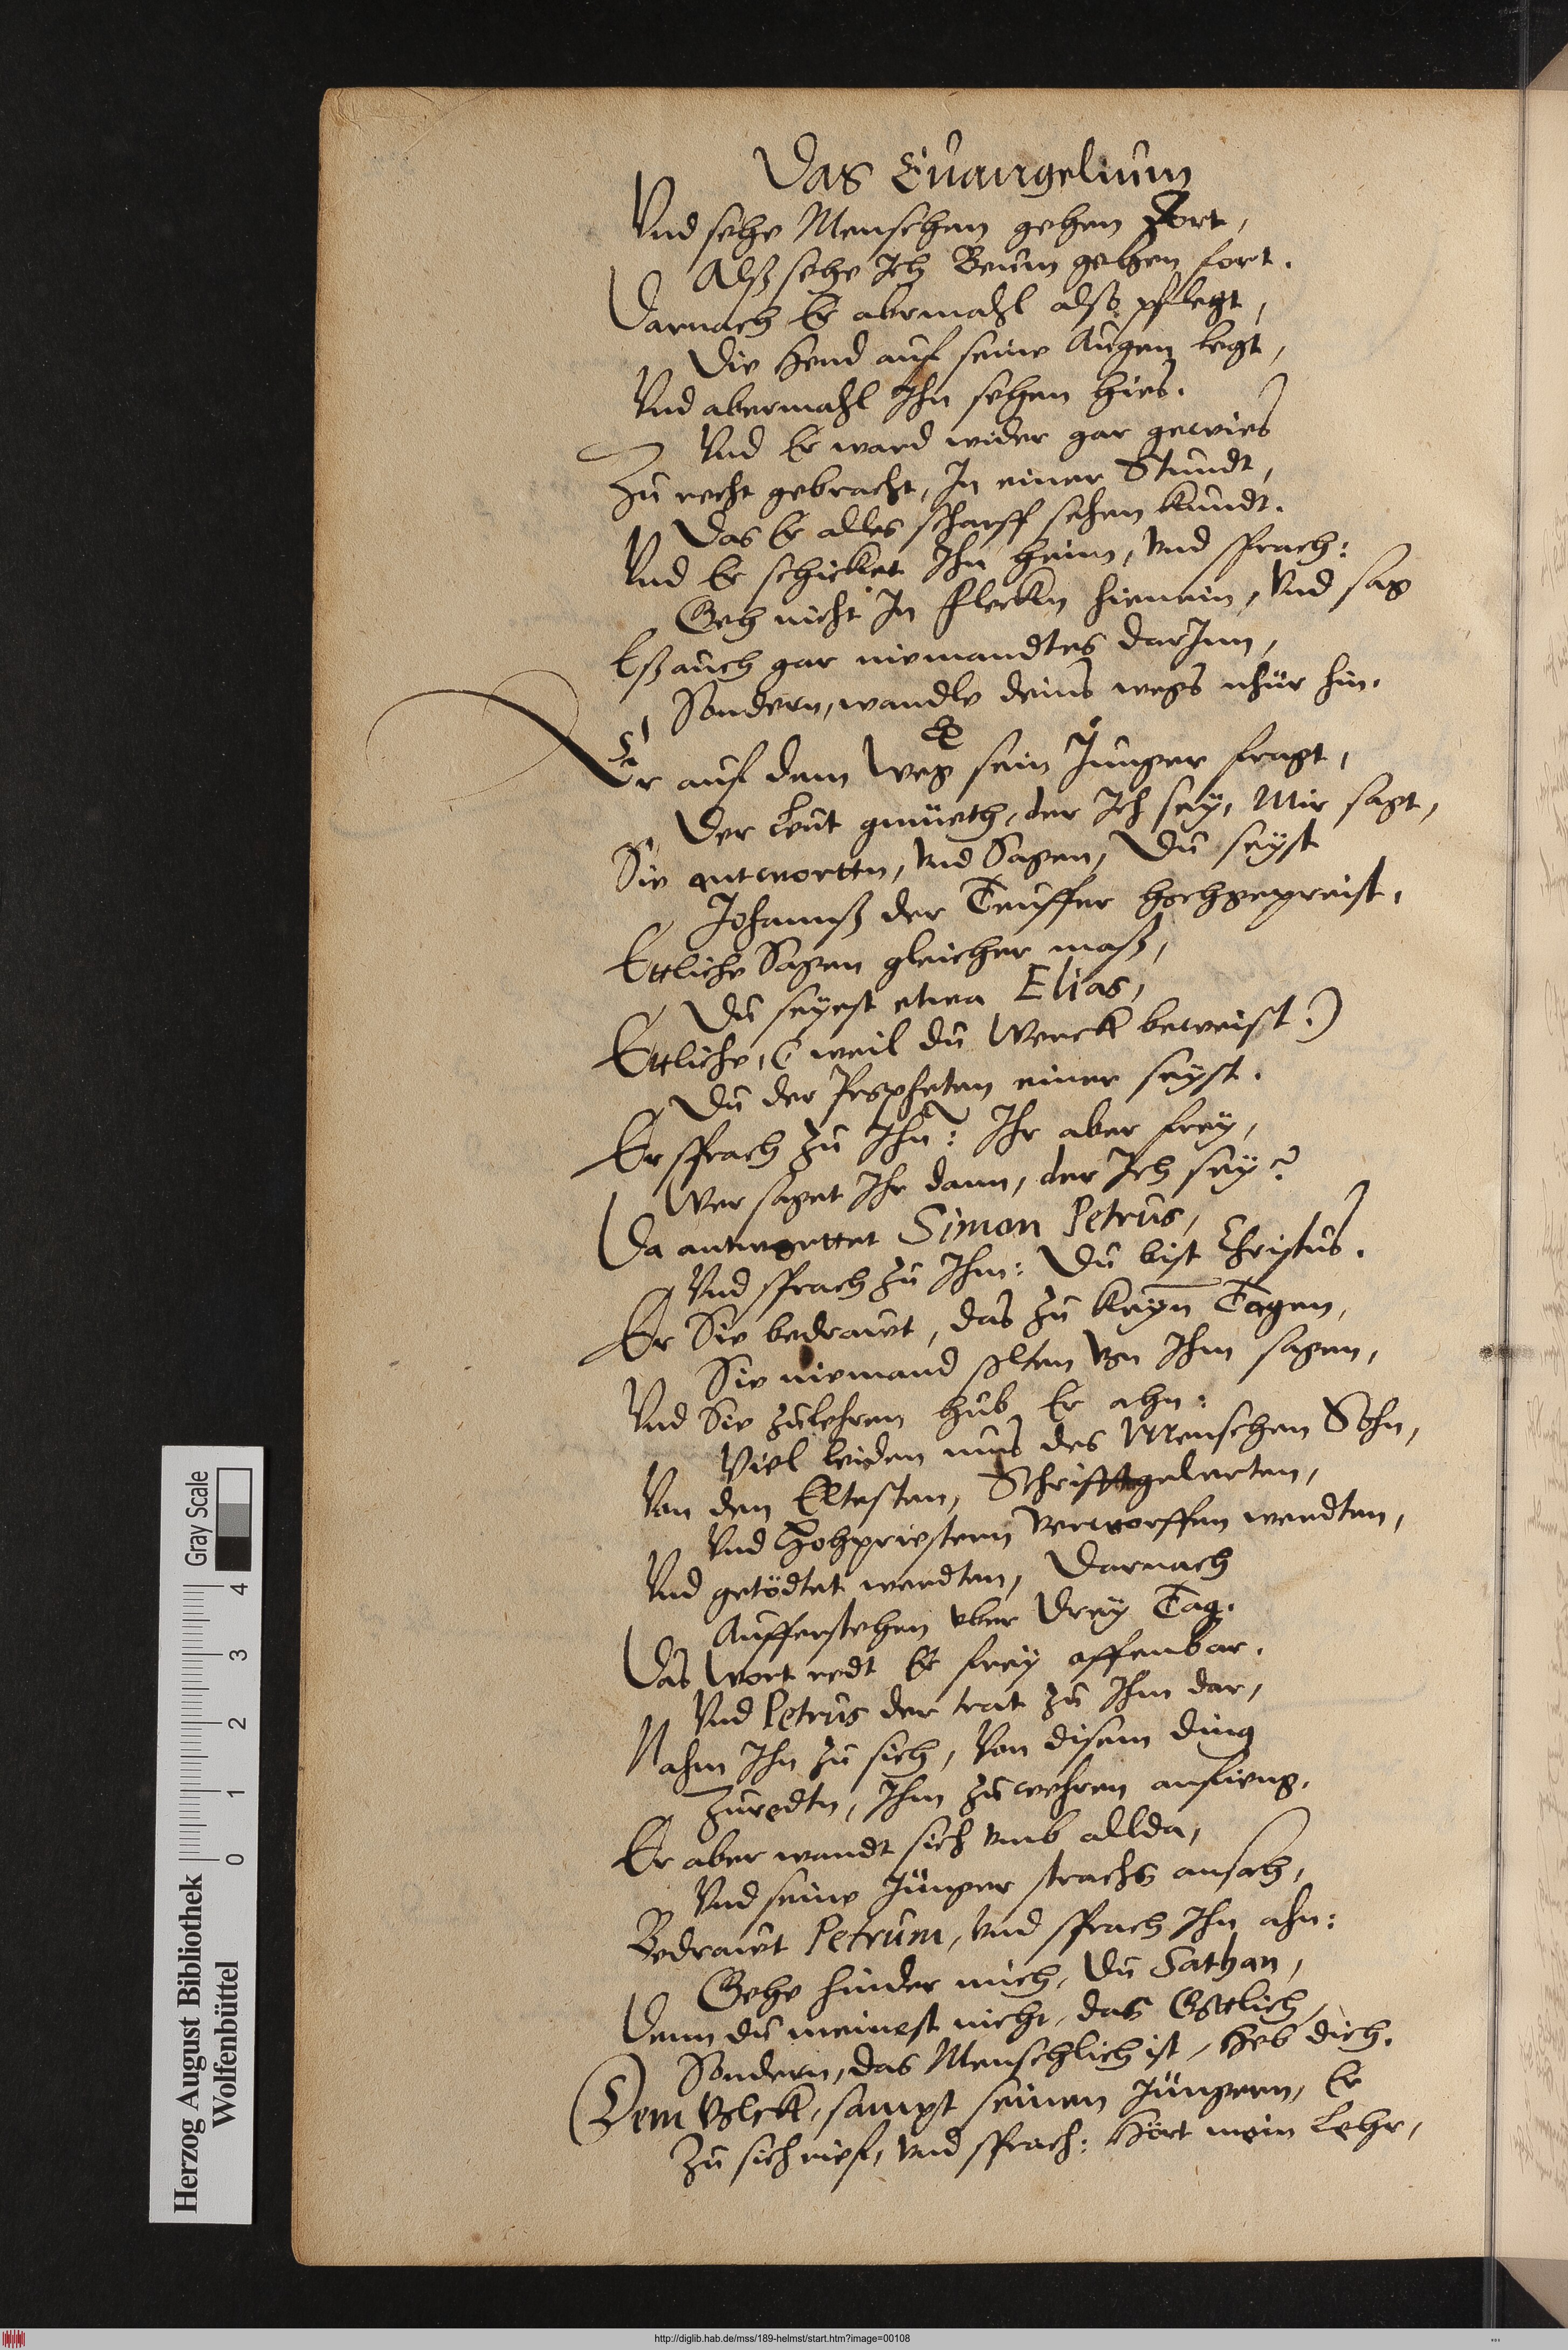 Das Euangelium
Vnd sehe Menschen gehen dort,
Alß sehe Ich Beum gehen fort.
Darnach Er abermahl also pflegt,
Die Hend auf seine Augen legt,
Vnd abermahl Ihn sehen hies.
Vnd Er ward wider gar gewies
Zu recht gebracht, In einer Stundt,
Das Er alles scharff sehen kundt.
Vnd Er schicket Ihn heim, vnd sprach:
Geh nicht In flecken hienein, Vnd sag
Eß auch gar niemandtes darInn,
Sondern, wandle deins wegs nhür hin.
Er auf dem Weg sein Jünger fragt,
Der Leut gmüeth, der Ich sey, Mir sagt,
Sie antworten, vnd Sagen, Du seyst
Johannß der Teuffer hochgepreist.
Ettliche Sagen gleicher maß,
Du seyest etwa Elias,
Ettliche, (weil du Werck beweist.)
Du der Propheten einer seyst.
Er sprach zu Ihn: Ihr aber frey,
Wer saget Ihr dann, der Ich sey?
Da antworttet Simon Petrus,
Vnd sprach zu Ihm: Du bist Christus.
Er Sie bedrawt, das zu keyn Tagen,
Sie niemand solten von Ihm sagen,
Vnd Sie zulehren hub Er ahn:
Viel leiden mus des Menschen Sohn,
Von den Eltesten, Schrifftgelerten,
Vnd Hohpriestern verworffen werdten,
Vnd getödtet werdten, Darnach
Aufferstehen vber Drey Tag.
Das Wort redt Er frey offenbar.
Vnd Petrus der trat zu Ihm dar,
Nahm Ihn zu sich, Von disem ding
Zuredtn, Ihm zuwehren anfieng.
Er aber wandt sich vmb allda,
Vnd seine Jünger strachs ansah,
Bedrawt Petrum, vnd sprach Ihn ahn:
Gehe hinder mich, Du Sathan,
Denn du meinest nicht, das Göttlich,
Sondern, das Menschlich ist, Heb dich.
Dem Volck, sampt seinen Jüngern, Er
Zu sich rief, vnd sprach: Hört mein Lehr,
Herzog August Bibliothek
Wolfenbüttel
0 1 2 3 4
Gray Scale
http://diglib.hab.de/mss/189-helmst/start.htm?image=00108